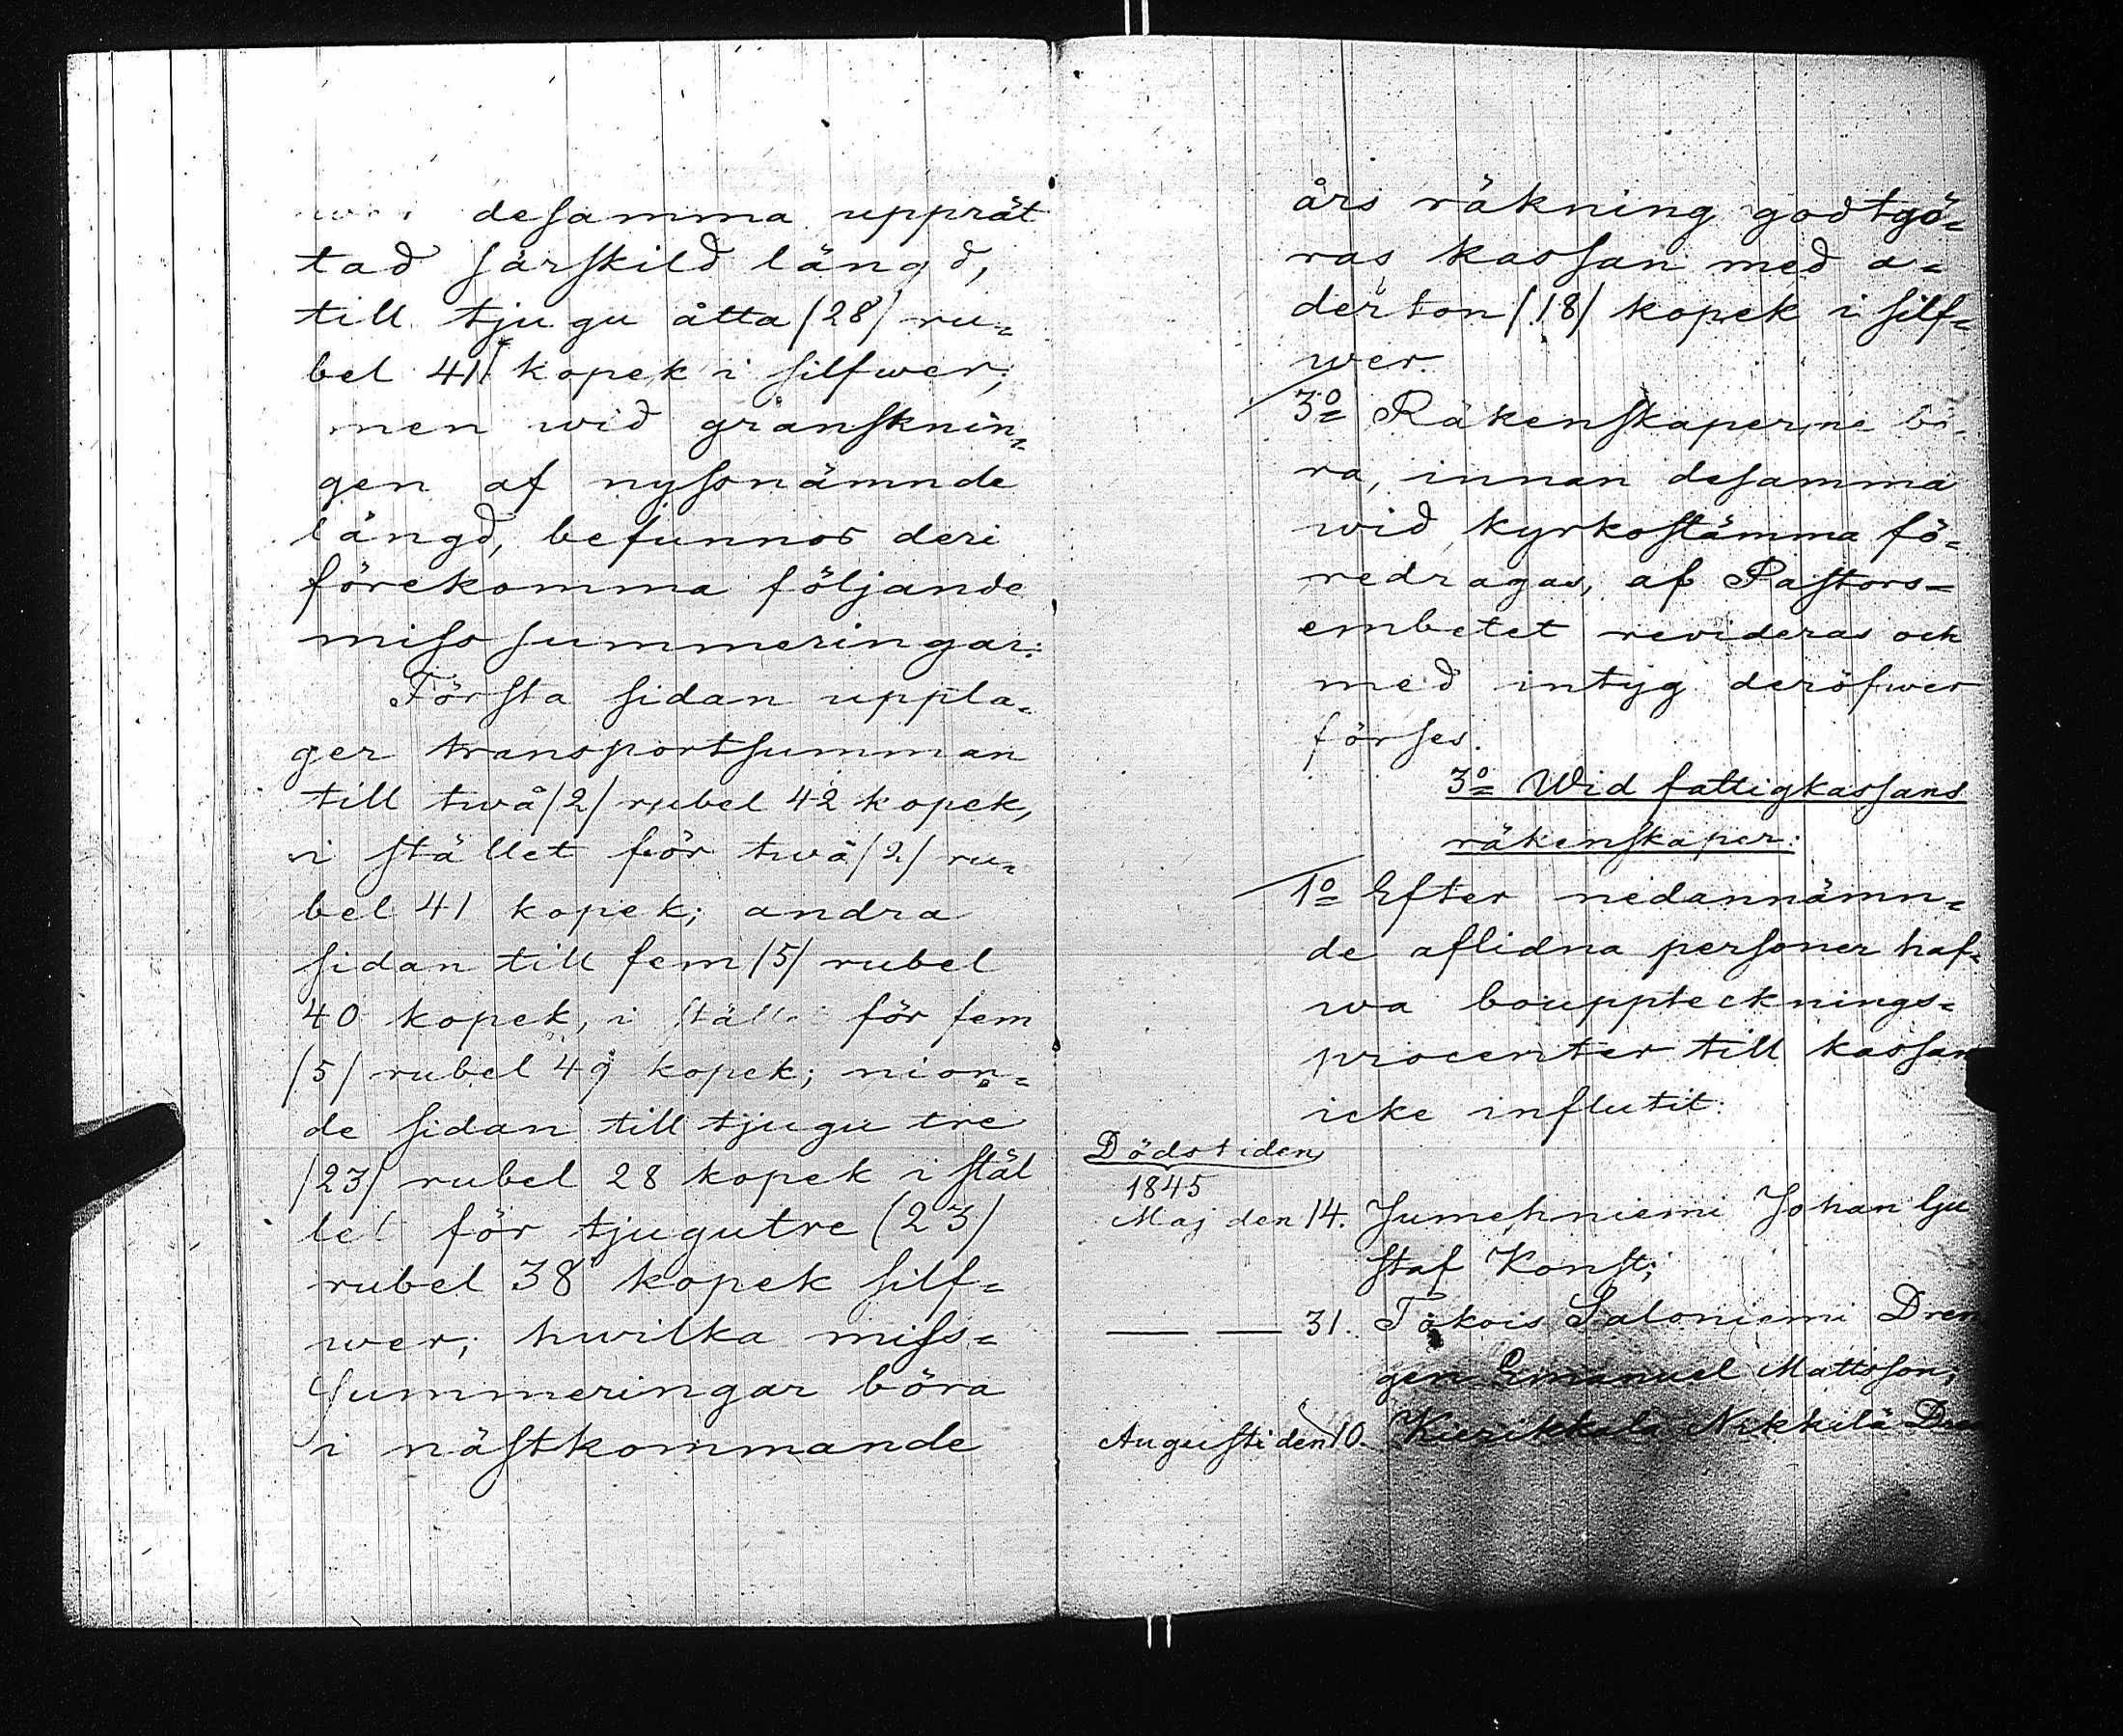 desamma upprät
tad särskild längd,
till tjugu åtta /28/ ru=
bel 41 kopek i silfwer;
men wid gransknin=
gen af nyssnämnde
längd, befunnos deri
förekomma följande
miss summeringar:
Första sidan uppla=
ger transportsumman
till twå /2/ rubel 42 kopek,
i stället för twå /2/ ru=
bel 41 kopek; andra
sidan till fem /5/ rubel
40 kopek, i stället för fem
/5/ rubel 49 kopek; nion=
de sidan till tjugu tre
/23/ rubel 28 kopek i stäl
let för tjugutre (23/
rubel 38 kopek silf=
wer; hwilka miss=
summeringar böra
i nästkommande
års räkning godtgö=
ras kassan med a=
derton /18/ kopek i silf=
wer.
3o Räkenskaperne bö=
ra, innan desamma
wid kyrkostämma fö=
redragas, af Pastors=
embetet revideras och
med intyg deröfwer
förses.
3o Wid fattigkassans
räkenskaper:
1o Efter nedannämn=
de aflidna personer haf=
wa boupptecknings=
procenter till kassan
icke influtit:
Dödstiden
1845
Maj den 14. Johan Gu
staf Konst;
— — 31. Tokois Saloniemi Dren
gen Emanuel Mattsson;
Augusti den 10. Kierikkala Nikkilä Dren